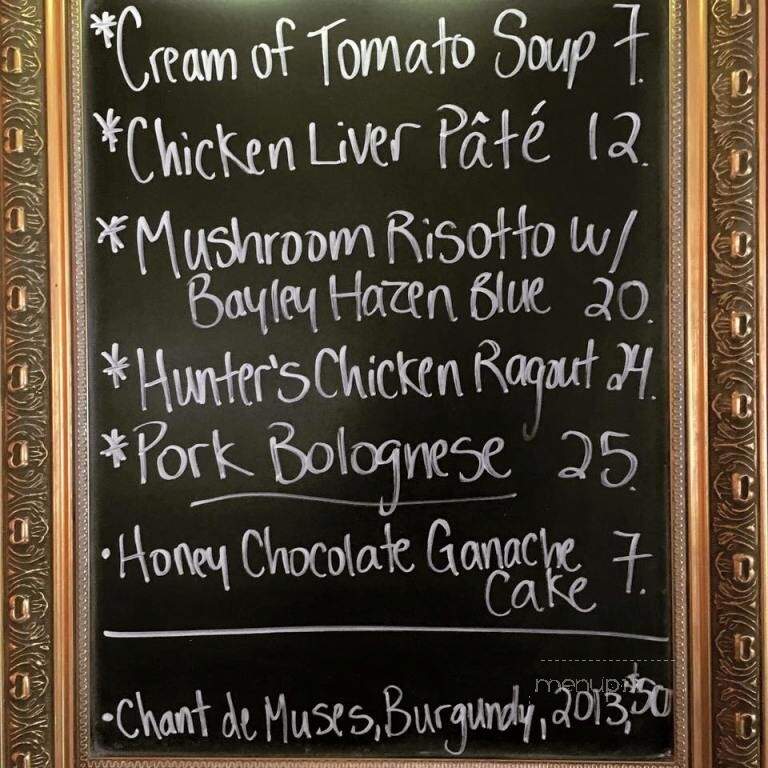 *Cream of Tomato Soup 7.
*Chicken Liver Pâté 12.
*Mushroom Risotto w/
Bayley Hazen Blue 20.
*Hunter's Chicken Ragout 24.
*Pork Bolognese 25.
•Honey Chocolate Ganache 7.
Cake
menupix
•Chant de Muses, Burgundy, 2013, $50